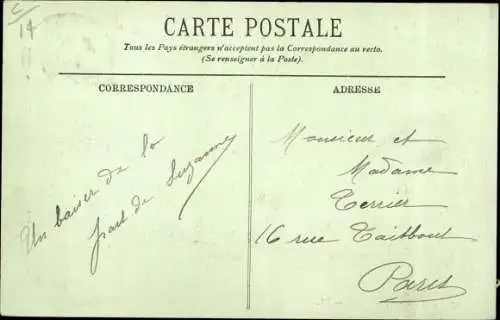 C/14
CARTE POSTALE
Tous les Pays étrangers n'acceptent pas la Correspondance au recto.
(Se renseigner à la Poste).
CORRESPONDANCE
Un baiser de la
part de Suzanne
ADRESSE
Monsieur et
Madame
Terrier
16 rue Taitbout
Paris